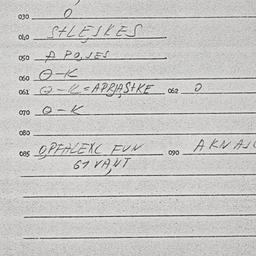 030 O
040 S+LE,SKES
050 A PO,SES
060 O-K
061 O-K=APRJAS+KE 062 O
070 O-K
080
085 O,PFALEXC FUN 090 AKNAJC
61 VA,NT